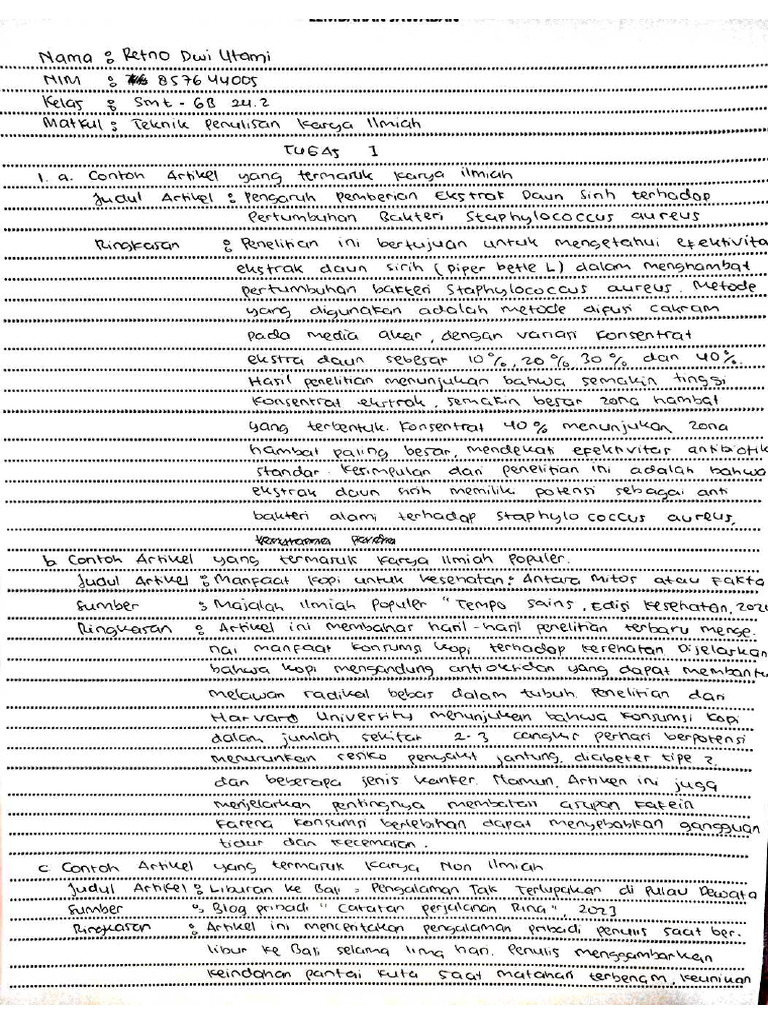 LEMBARAN JAWABAN
Nama : Retno Dwi Utami
NIM : 857644005
Kelas : Smt - 6B 24.2
Matkul : Teknik Penulisan Karya Ilmiah
TUGAS I
1. a. Contoh Artikel yang termasuk karya ilmiah
Judul Artikel : Pengaruh Pemberian Ekstrak Daun Sirih terhadap
Pertumbuhan Bakteri Staphylococcus aureus
Ringkasan : Penelitian ini bertujuan untuk mengetahui efektivita
ekstrak daun sirih (piper betle L) dalam menghambat
pertumbuhan bakteri Staphylococcus aureus. Metode
yang digunakan adalah metode difusi cakram
pada media akar, dengan variasi konsentrat
ekstra daun sebesar 10%, 20%, 30% dan 40%.
Hasil penelitian menunjukan bahwa semakin tinggi
konsentrat ekstrak, semakin besar zona hambat
yang terbentuk. Konsentrat 40% menunjukan zona
hambat paling besar, mendekati efektivitas antibiotik
standar. Kesimpulan dari penelitian ini adalah bahwa
ekstrak daun sirih memilik potensi sebagai anti
bakteri alami terhadap Staphylo coccus aureus,
b. Contoh Artikel yang termasuk karya Ilmiah Populer.
Judul Artikel : Manfaat Kopi untuk kesehatan : Antara Mitos atau Fakta
Sumber : Majalah Ilmiah Populer "Tempo Sains, Edisi Kesehatan,
Ringkasan : Artikel ini membahas hasil-hasil penelitian terbaru menge.
nai manfaat konsumsi kopi terhadap kesehatan Dijelaskan
bahwa kopi mengandung antioksidan yang dapat membantu
melawan radikal bebas dalam tubuh. Penelitian dari
Harvard University menunjukan bahwa konsumsi kopi
dalam jumlah sekitar 2-3 cangkir perhari berpotensi
menurunkan resiko penyakit jantung, diabetes tipe 2.
dan beberapa jenis kanker. Namun, Artiken ini juga
menjelaskan pentingnya membatasi asupan kafein
karena konsumsi berlebihan dapat menyebabkan gangguan
tidur dan kecemasan.
c. Contoh Artikel yang termasuk karya Non Ilmiah
Judul Artikel : Liburan ke Bali : Pengalaman Tak Terlupakan di Pulau Dewata
Sumber : Blog pribadi "Catatan perjalanan Rina", 2023
Ringkasan : Artikel ini menceritakan pengalaman pribadi penulis saat ber.
libur ke Bali selama lima hari. Penulis menggambarkan
keindahan pantai kuta saat matahari terbenam, keunikan